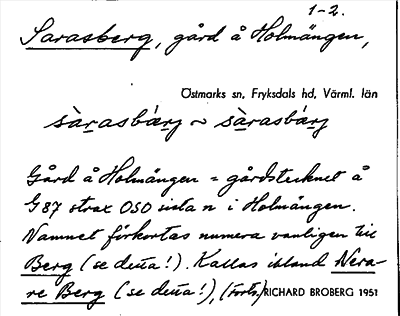 1-2.
Sarasberg, gård å Holmängen,
Östmarks sn, Fryksdals hd, Värml. län
sàrasbærj ~ sàrasbárj
Gård å Holmängen = gårdstecknet å
G87 strax OSO sista n i Holmängen.
Namnet förkortas numera vanligen till
Berg (se detta!). Kallas ibland Nera-
re Berg (se detta!), (forts.) RICHARD BROBERG 1951